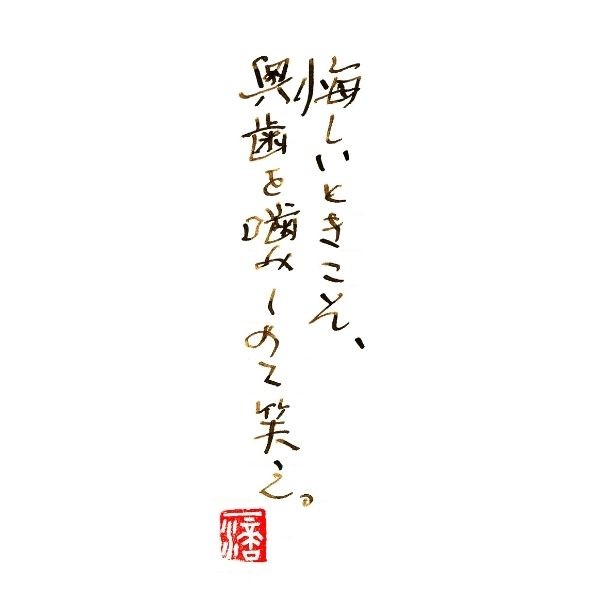 悔しいときこそ、
奥歯を噛みしめて笑え。